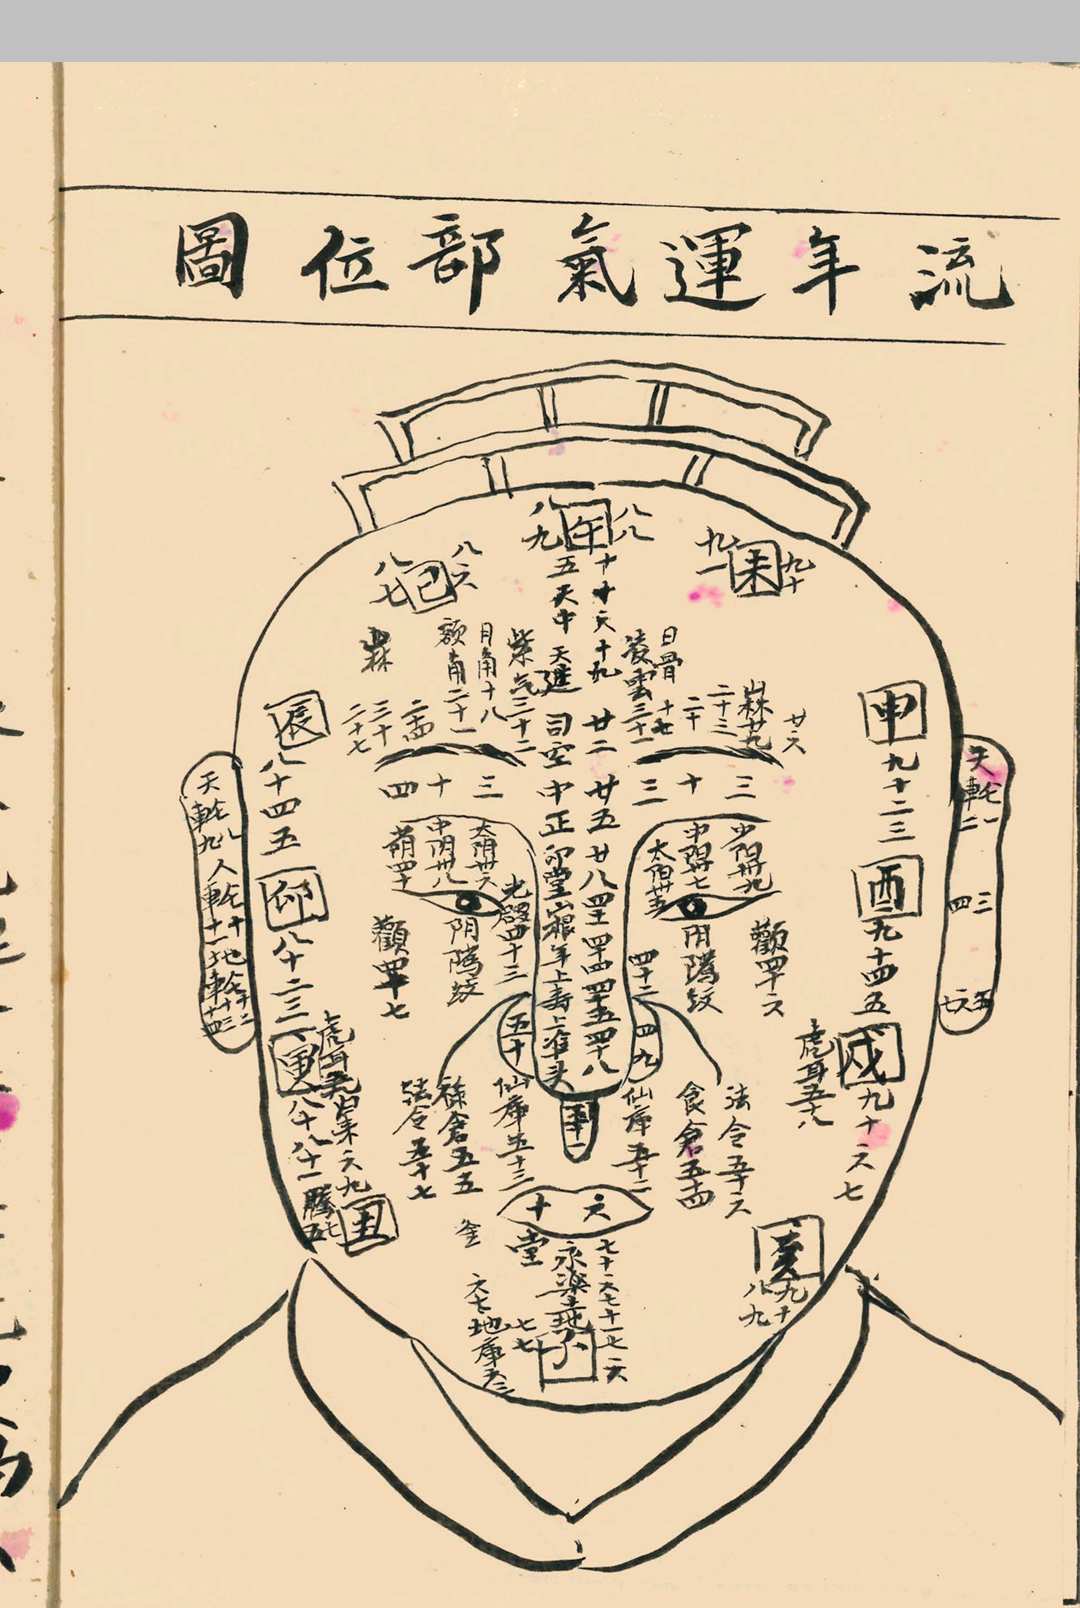 流年運氣部位圖
午
八八
八九
未
九十
九一
巳
八六
八七
天中
司空
中正
印堂
年上
壽上
準头
十六
十九
廿二
廿五
廿八
四十四
四十五
四十八
日骨
十七
凌雲三十一
紫气三十二
月角十八
額角二十一
山林廿九
二十
二十三
廿六
二十七
三十
三
十
三
三
十
四
少陽卅九
中陽卅七
太陽卅五
太阴卅六
中阴卅八
光殿四十三
四十二
阴騭紋
阴騭紋
顴四十六
顴四十七
四九
五十
申
九十二三
酉
九十四五
戌
九十六七
亥
九十
八九
辰
八十四五
卯
八十二三
寅
八十八十一
丑
子
天輪一
二
三
四
五
六
天輪八
九
人輪十
十一
地輪十二
虎耳五十八
法令五十六
食倉五十四
仙庫五十二
仙庫五十三
祿倉五五
法令五十七
六十
永樂
七七
地庫